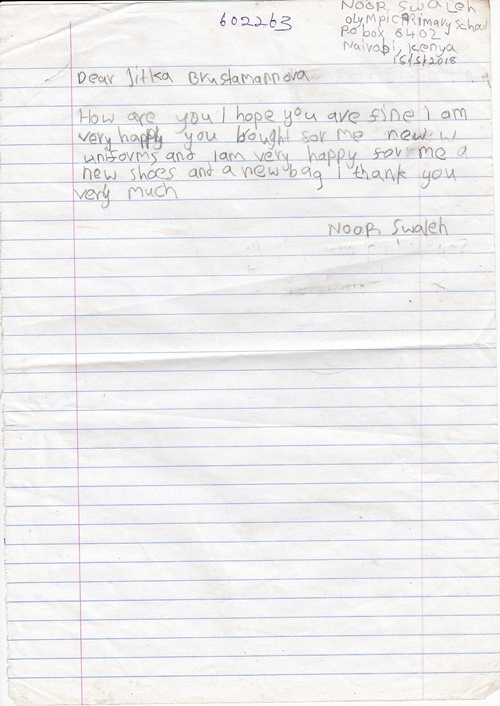 602263
NOOR SWALEH
OLYMPIC PRIMARY School
PO BOX 6402
Nairobi, Kenya
15/5/2018
Dear Jitka Brustamannova
How are you I hope you are fine I am
very happy you bought for me new w
uniforms and I am very happy for me a
new shoes and a new bag I thank you
very much
NOOR Swaleh